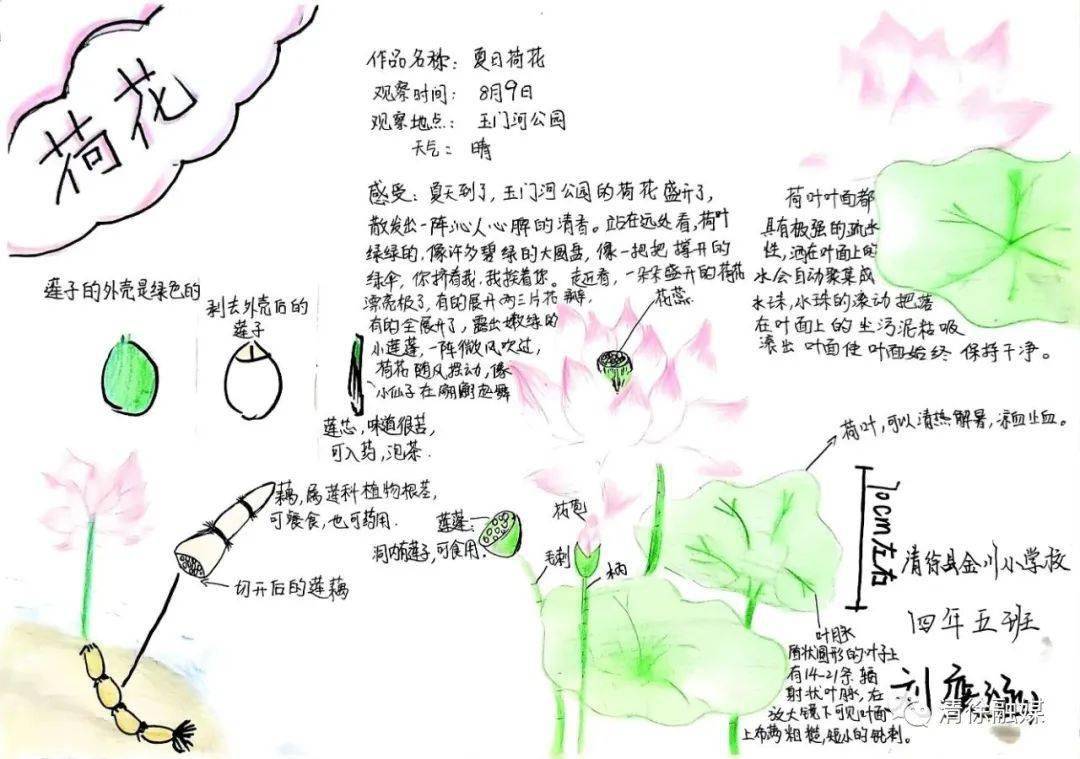 荷花
作品名称：夏日荷花
观察时间：8月9日
观察地点：玉门河公园
天气：晴
感受：夏天到了，玉门河公园的荷花盛开了，
散发出一阵沁人心脾的清香。站在远处看，荷叶
绿绿的，像许多碧绿的大圆盘，像一把把撑开的
绿伞，你挤着我，我挨着您。走近看，一朵朵盛开的荷花
漂亮极了，有的展开两三片花瓣，
有的全展开了，露出嫩绿的
小莲蓬，一阵微风吹过，
荷花随风摆动，像
小仙子在翩翩起舞
荷叶叶面都
具有极强的疏水
性，洒在叶面上的
水会自动聚集成
水珠，水珠的滚动把落
在叶面上的尘污泥粘吸
滚出叶面使叶面始终保持干净。
莲子的外壳是绿色的
剥去外壳后的
莲子
莲芯，味道很苦，
可入药，泡茶.
花蕊
藕，属莲科植物根茎，
可餐食，也可药用.
切开后的莲藕
莲蓬：
洞内有莲子，可食用.
毛刺
花苞
柄
荷叶，可以清热解暑，凉血止血。
70cm左右
叶脉
盾状圆形的叶子上
有14-21条辐
射状叶脉，在
放大镜下可见叶面
上布满粗糙，短小的钝刺。
清徐县金川小学校
四年五班
清徐融媒